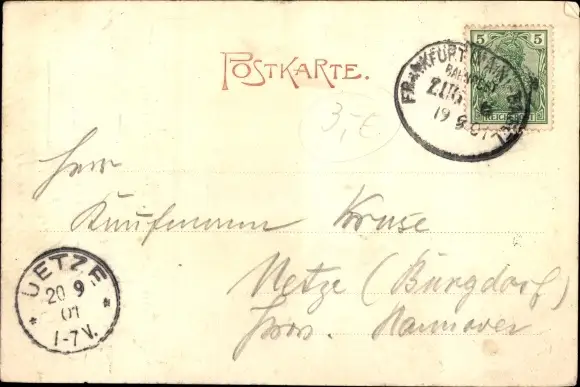 POSTKARTE.
5 5
REICHSPOST
FRANKFURT (MAIN)
BAHNPOST
ZUG
19 9 01
3,- €
Herrn
Kaufmann Kruse
Uetze (Burgdorf)
Prov. Hannover
* UETZE *
20 9
01
1-7V.